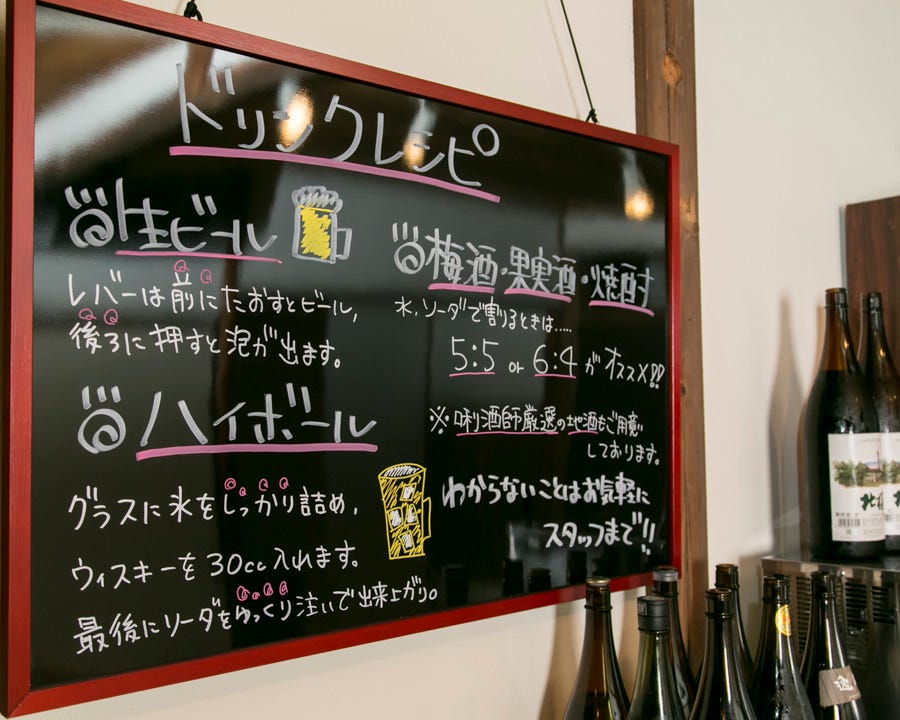 ドリンクレシピ
生ビール
レバーは前にたおすとビール,
後ろに押すと泡が出ます。
ハイボール
グラスに氷をしっかり詰め,
ウィスキーを30cc入れます。
最後にソーダをゆっくり注いで出来上がり。
梅酒・果実酒・焼酎
水,ソーダで割るときは.....
5:5 or 6:4 がオススメ!!
※・唎酒師厳選の地酒もご用意
しております。
わからないことはお気軽に
スタッフまで!!